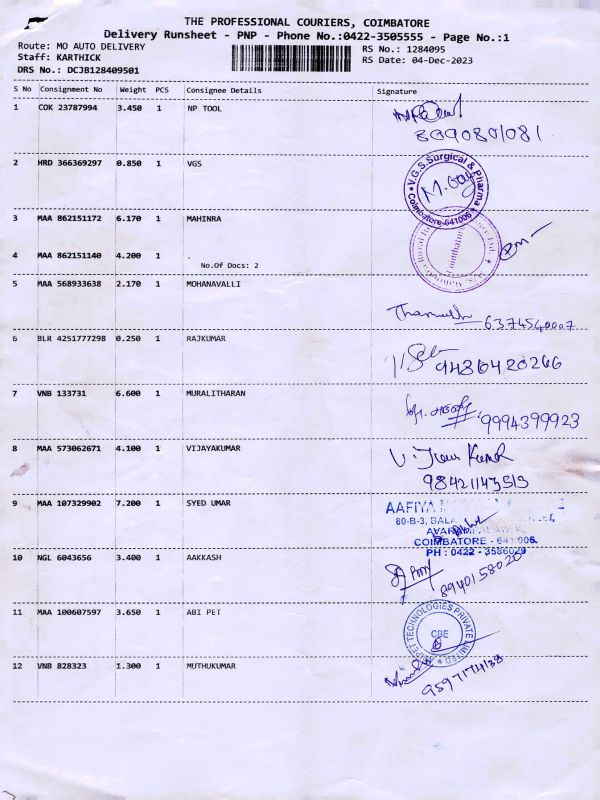 THE PROFESSIONAL COURIERS, COIMBATORE
Delivery Runsheet - PNP - Phone No.:0422-3505555 - Page No.:1
Route: MO AUTO DELIVERY
RS No.: 1284095
Staff: KARTHICK
RS Date: 04-Dec-2023
DRS No.: DCJB128409501
S No Consignment No Weight PCS Consignee Details Signature
1 COK 23787994 3.450 1 NP TOOL
2 HRD 366369297 0.850 1 VGS
V.G.S.Surgical & Pharma
Coimbatore-641006
3 MAA 862151172 6.170 1 MAHINRA
4 MAA 862151140 4.200 1 .
No.Of Docs: 2
Coimbatore
5 MAA 568933638 2.170 1 MOHANAVALLI
6374540007
6 BLR 4251777298 0.250 1 RAJKUMAR
9486420266
7 VNB 133731 6.600 1 MURALITHARAN
9994399923
8 MAA 573062671 4.100 1 VIJAYAKUMAR
9 MAA 107329902 7.200 1 SYED UMAR
AAFIYA
80-B-3, BALA
COIMBATORE - 641 006.
PH : 0422 - 3586029
10 NGL 6043656 3.400 1 AAKKASH
8940158020
11 MAA 100607597 3.650 1 ABI PET
TECHNOLOGIES PRIVATE LIMITED
CBE
12 VNB 828323 1.300 1 MUTHUKUMAR
9597174138